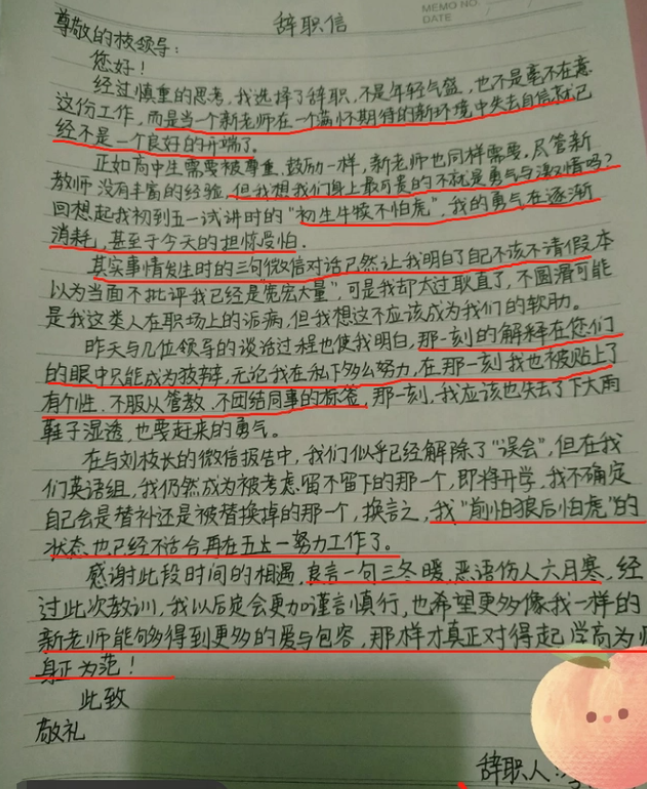 MEMO NO.
DATE
辞职信
尊敬的校领导:
您好!
经过慎重的思考,我选择了辞职,不是年轻气盛,也不是毫不在意
这份工作,而是当一个新老师在一个满怀期待的新环境中失去自信就已
经不是一个良好的开端了。
正如高中生需要被尊重、鼓励一样,新老师也同样需要,尽管新
教师没有丰富的经验,但我想我们身上最可贵的不就是勇气与激情吗?
回想起我初到五一试讲时的“初生牛犊不怕虎”,我的勇气在逐渐
消耗,甚至于今天的担惊受怕.
其实事情发生时的三句微信对话已然让我明白了自己不该不请假,本
以为当面不批评我已经是“宽宏大量”,可是我却太过耿直了,不圆滑可能
是我这类人在职场上的派病,但我想这不应该成为我们的软肋。
昨天与几位领导的谈话过程也使我明白,那一刻的解释在您们
的眼中只能成为狡辩,无论我在私下多么努力,在那一刻我也被贴上了
有个性、不服从管教、不团结同事的标签,那一刻,我应该也失去了下大雨
鞋子湿透,也要赶来的勇气。
在与刘校长的微信报告中,我们似乎已经解除了“误会”,但在我
们英语组,我仍然成为被考虑留不留下的那一个,即将开学,我不确定
自己会是替补还是被替换掉的那一个,换言之,我“前怕狼后怕虎”的
状态也已经不适合再在五一努力工作了。
感谢此段时间的相遇,良言一句三冬暖,恶语伤人六月寒,经
过此次教训,我以后定会更加谨言慎行,也希望更多像我一样的
新老师能够得到更多的爱与包容,那样才真正对得起学高为师
身正为范!
此致
敬礼
辞职人: